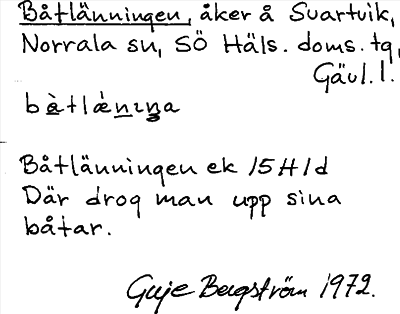 Båtlänningen, åker å Svartvik,
Norrala sn, SÖ Häls. doms. tg,
Gävl. l.
bå̀tlǽnıŋa
Båtlänningen ek 15H1d
Där drog man upp sina
båtar.
Guje Bergström 1972.